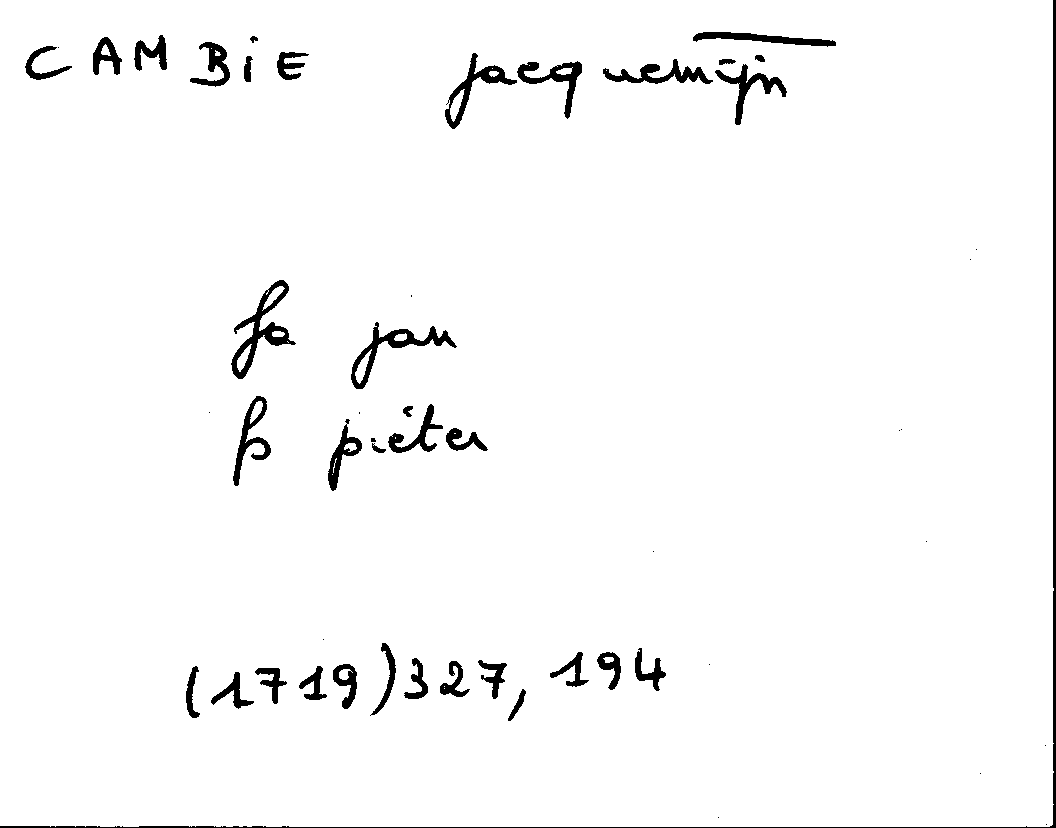 CAMBiE jacquemijn
fa jan
fs pieter
(1719)327, 194